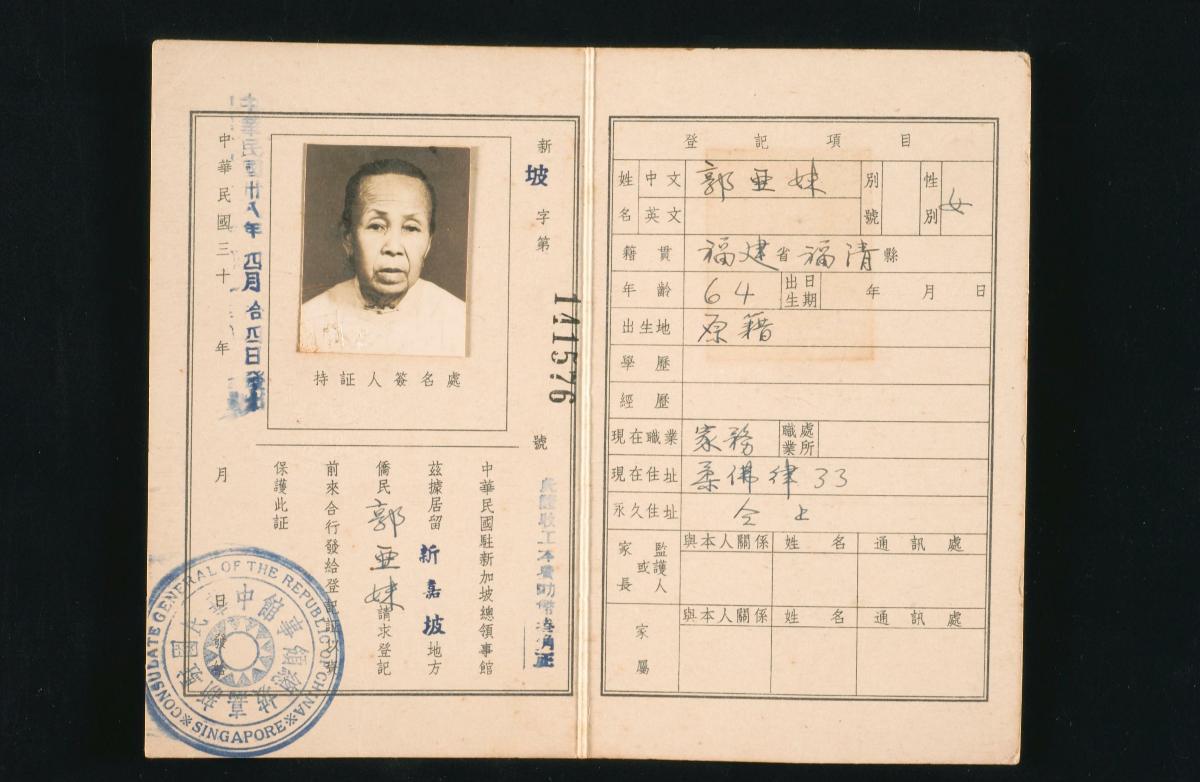 新坡字第141576號
持証人簽名處
中華民國駐新加坡總領事館
茲據居留新嘉坡地方
僑民郭亜妹請求登記
前來合行發給登記証以資
保護此証
中華民國三十年月日發給
中華民國卅八年四月廿四日發給
CONSULATE GENERAL OF THE REPUBLIC OF CHINA
SINGAPORE
登記項目
姓名 中文 郭亜妹 別號 性別 女
英文
籍貫 福建省福清縣
年齡 64 出生日期 年月日
出生地 原籍
學歷
經歷
現在職業 家務 職業處所
現在住址 柔佛律33
永久住址 仝上
家長或監護人 與本人關係 姓名 通訊處
家屬 與本人關係 姓名 通訊處